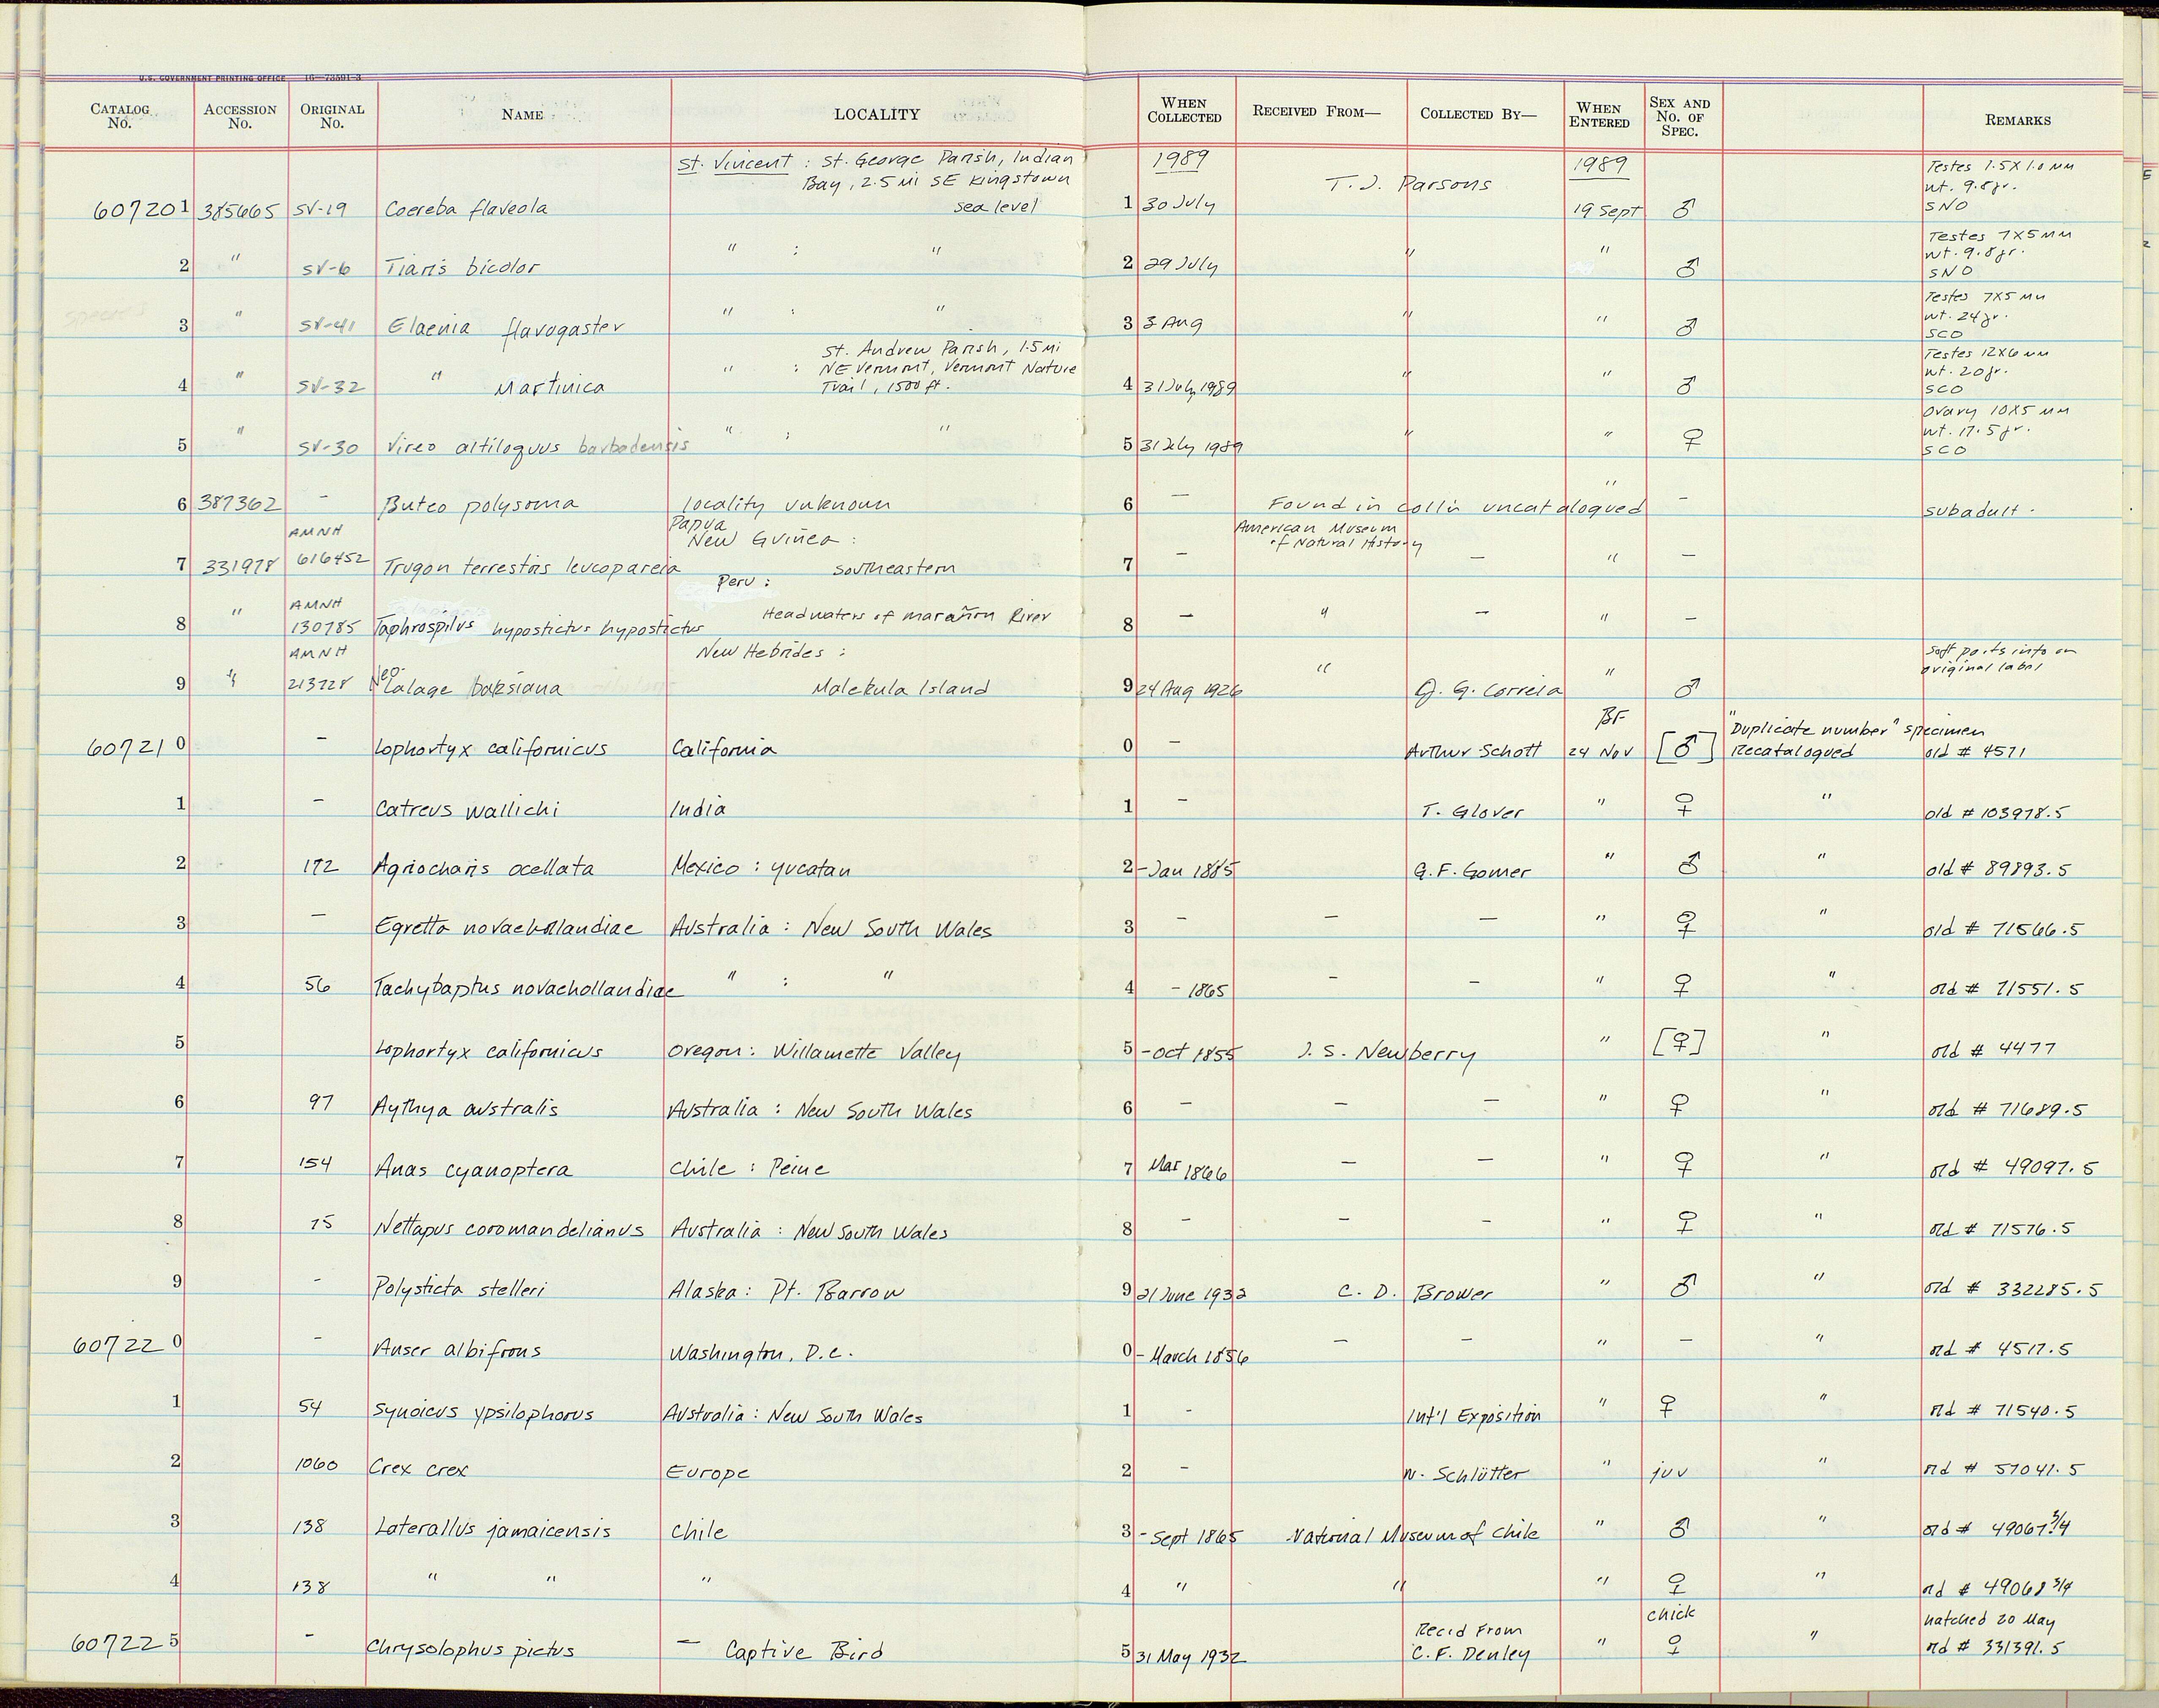 U.S. GOVERNMENT PRINTING OFFICE 16—73591-3
CATALOG No. ACCESSION No. ORIGINAL No. NAME LOCALITY WHEN COLLECTED RECEIVED FROM— COLLECTED BY— WHEN ENTERED SEX AND No. OF SPEC. REMARKS
St. Vincent : St. George Parish, Indian 1989 1989 Testes 1.5 X 1.0 mm
Bay, 2.5 mi SE Kingstown T. J. Parsons wt. 9.8 gr.
607201 385665 SV-19 Coereba flaveola sea level 1 30 July 19 Sept ♂ SNO
" : " " " Testes 7X5 mm
wt. 9.8 gr.
2 " SV-6 Tiaris bicolor 2 29 July ♂ SNO
" : " " " Testes 7X5 mm
wt. 24 gr.
3 " SV-41 Elaenia flavogaster 3 3 Aug ♂ SCO
St. Andrew Parish, 1.5 mi Testes 12X6 mm
" : NE Vermont, Vermont Nature " " wt. 20 gr.
4 " SV-32 " Martinica Trail, 1500 ft. 4 31 July 1989 ♂ SCO
" : " " " ovary 10X5 mm
wt. 17.5 gr.
5 " SV-30 Vireo altiloquus barbadensis 5 31 July 1989 ♀ SCO
6 387362 – Buteo polysoma locality unknown 6 — Found in coll'n uncatalogued " – subadult.
AMNH Papua American Museum
New Guinea : of Natural History
7 331978 616452 Trugon terrestris leucopareia southeastern 7 — — " —
Peru :
AMNH
8 " 130785 Taphrospilus hypostictus hypostictus Headwaters of Marañon River 8 — " — " —
AMNH New Hebrides : Soft parts info on
Neo- " " original label
9 " 213728 lalage banksiana Malekula Island 9 24 Aug 1926 J. G. Correia ♂
BF "Duplicate number" specimen
607210 – Lophortyx californicus California 0 — Arthur Schott 24 Nov [♂] Recatalogued old # 4571
1 – Catreus wallichi India 1 — T. Glover " ♀ " old # 103978.5
2 172 Agriocharis ocellata Mexico : Yucatan 2 -Jan 1885 G. F. Gomer " ♂ " old # 89893.5
3 – Egretta novaehollandiae Australia : New South Wales 3 — — — " ♀ " old # 71566.5
4 56 Tachybaptus novaehollandiae " : " 4 - 1865 — — " ♀ " old # 71551.5
5 Lophortyx californicus Oregon : Willamette Valley 5 -Oct 1855 J. S. Newberry " [♀] " old # 4477
6 97 Aythya australis Australia : New South Wales 6 — — — " ♀ " old # 71689.5
7 154 Anas cyanoptera Chile : Peine 7 Mar 1866 — — " ♀ " old # 49097.5
8 75 Nettapus coromandelianus Australia : New South Wales 8 — — — " ♀ " old # 71576.5
9 – Polysticta stelleri Alaska : Pt. Barrow 9 21 June 1932 C. D. Brower " ♂ " old # 332285.5
607220 – Anser albifrons Washington, D.C. 0 - March 1856 — — " — " old # 4517.5
1 54 Synoicus ypsilophorus Australia : New South Wales 1 - Int'l Exposition " ♀ " old # 71540.5
2 1060 Crex crex Europe 2 - W. Schlütter " juv " old # 57041.5
3 138 Laterallus jamaicensis Chile 3 - Sept 1865 National Museum of Chile " ♂ " old # 49067 3/4
4 138 " " " 4 " " " ♀ " old # 49068 3/4
Rec'd From chick hatched 20 May
607225 – Chrysolophus pictus — Captive Bird 5 31 May 1932 C. F. Denley " ♀ " old # 331391.5